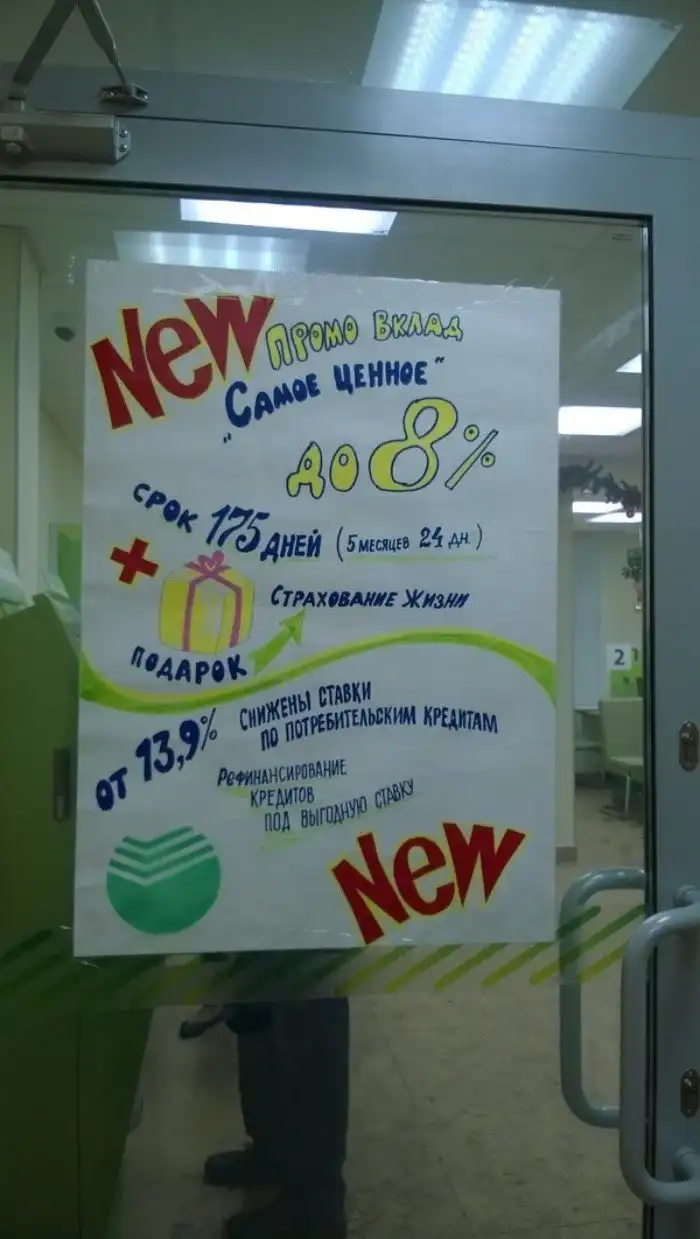 New ПРОМО ВКЛАД
"САМОЕ ЦЕННОЕ"
ДО 8%
СРОК 175 ДНЕЙ (5 МЕСЯЦЕВ 24 ДН.)
+
СТРАХОВАНИЕ ЖИЗНИ
ПОДАРОК
ОТ 13,9% СНИЖЕНЫ СТАВКИ
ПО ПОТРЕБИТЕЛЬСКИМ КРЕДИТАМ
РЕФИНАНСИРОВАНИЕ
КРЕДИТОВ
ПОД ВЫГОДНУЮ СТАВКУ
New
2